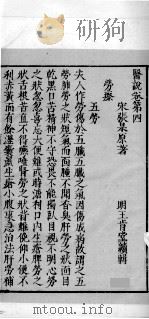 醫說卷第四
宋張杲原著 明王肯堂編輯
勞瘵
五勞
夫人作勞傷於五臟五臟之氣因傷成病故謂之五
勞肺勞之狀短氣而面腫不聞香臭肝勞之狀面目
乾黑口苦精神不守恐畏不能獨臥目視不明心勞
之狀忽忽喜忘大便難或時溏利口內生瘡脾勞之
狀舌根苦直不得嚥唾腎勞之狀背難俛仰小便不
利赤黃而有餘瀝囊濕生瘡小腹脹急治法肝勞補
mtoou.info mtoou.info